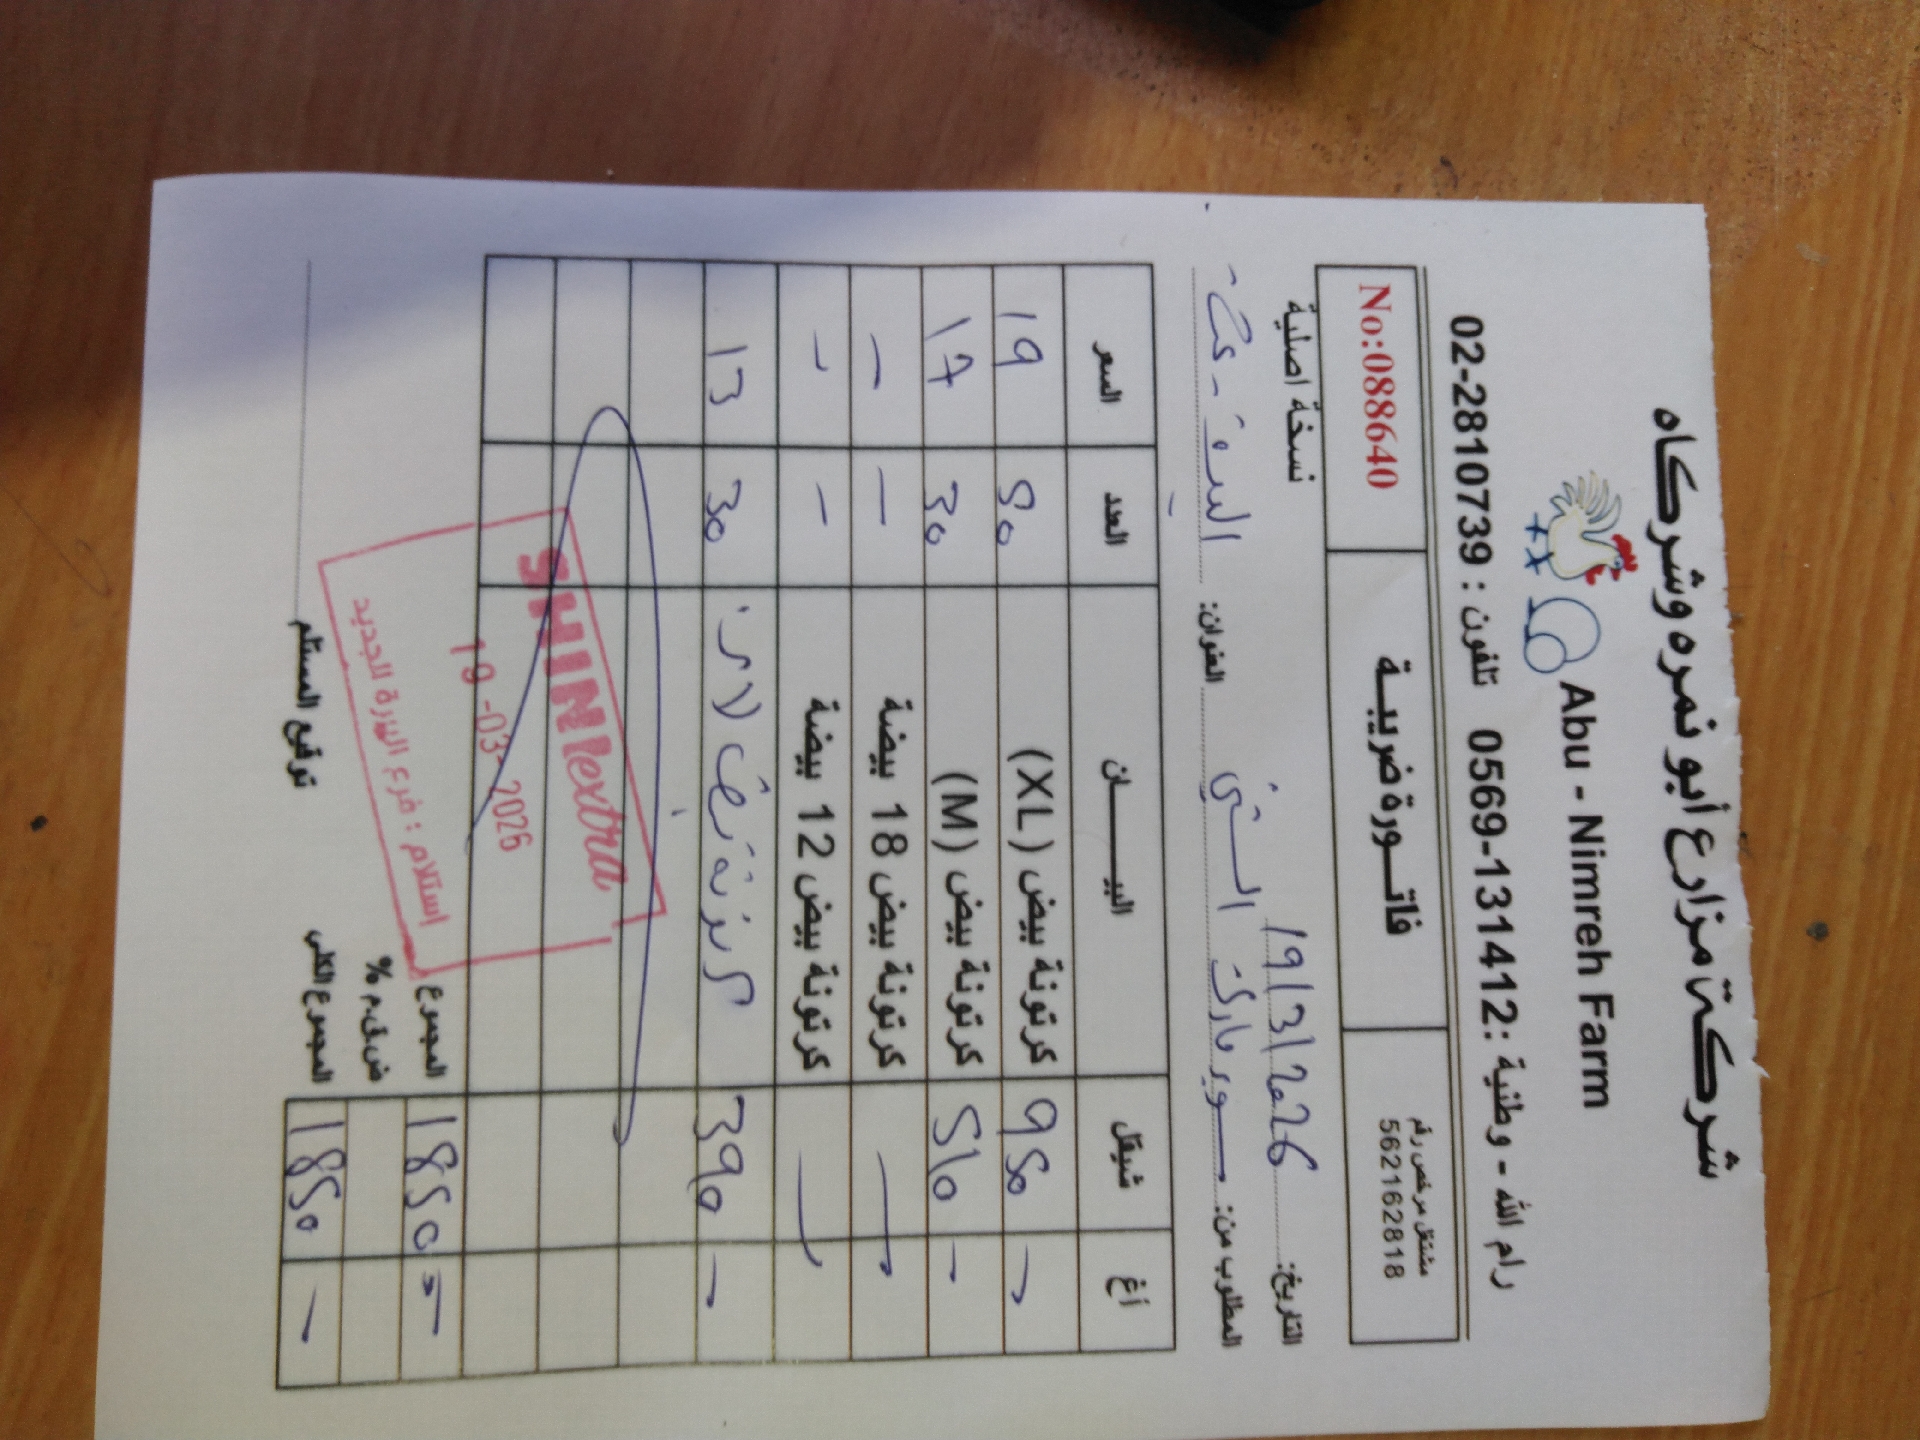 شركة مزارع أبو نمره وشركاه
Abu - Nimreh Farm
رام الله - وطنية : 0569-131412 تلفون : 02-2810739
مشتغل مرخص رقم
562162818
فاتـورة ضريبـة
No:088640
التاريخ: 19/3/2026
نسخة اصلية
المطلوب من: سوبر ماركت الشني العنوان:
شيقل أغ البيـــان العدد السعر
950 - كرتونة بيض (XL) 50 19
510 - كرتونة بيض (M) 30 17
- كرتونة بيض 18 بيضة - -
- كرتونة بيض 12 بيضة - -
390 - 30 13
SHINI extra
19 -03- 2026
استلام : فرع البيرة الجديد
المجموع 1850 -
ض.ق.م %
المجموع الكلي 1850 -
توقيع المستلم